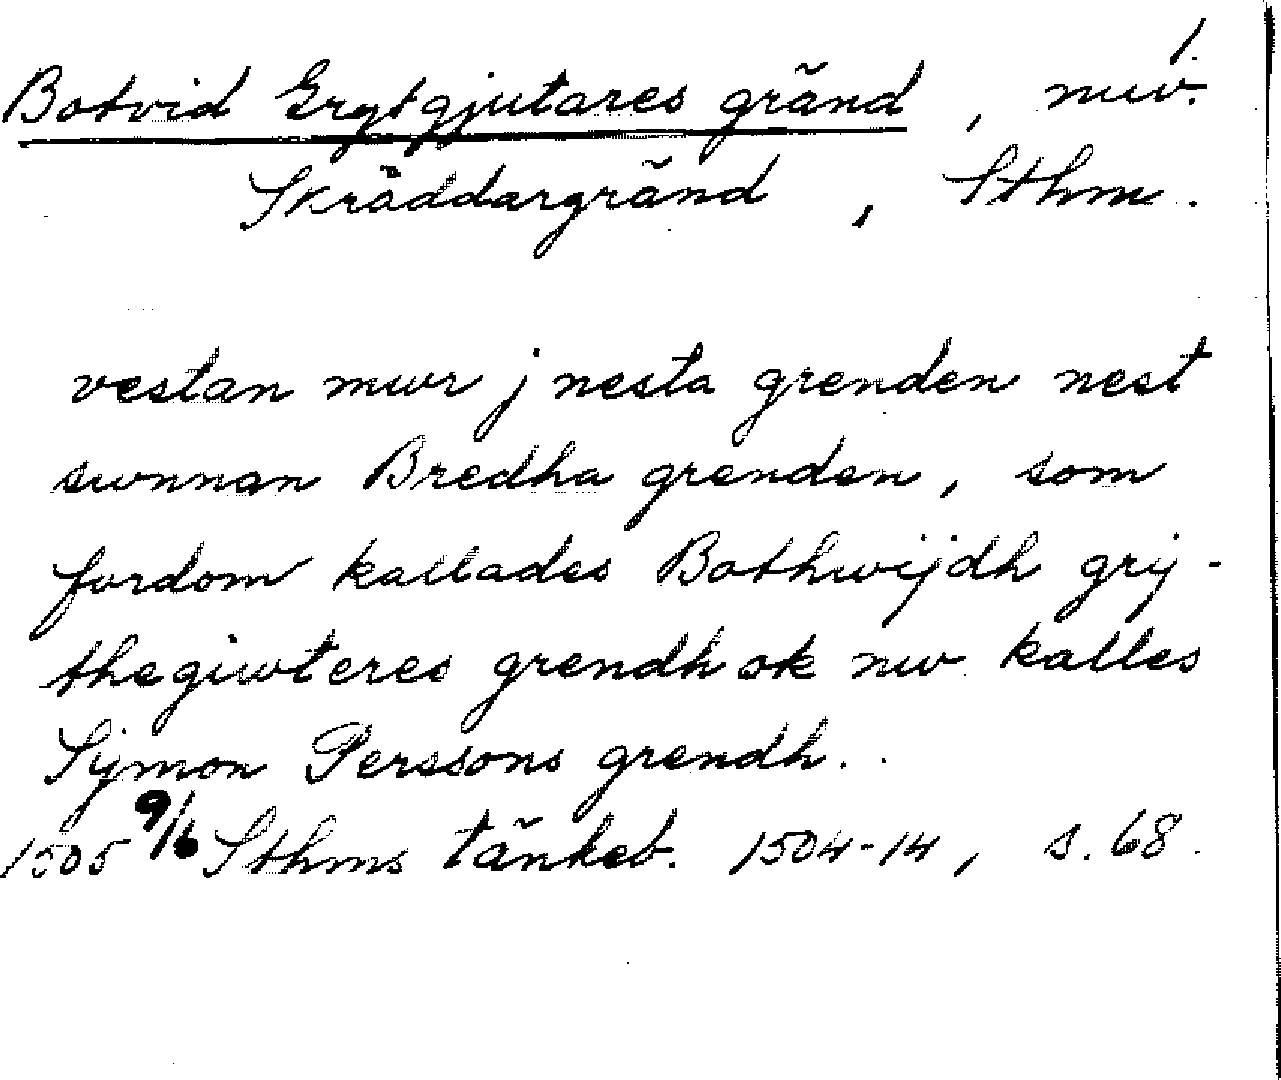 1.
Botvid Grytgjutares gränd, nuv.
Skräddargränd, Sthm.
vestan mwr j nesta grenden nest
swnnan Bredha grenden, som
fordom kallades Bothwijdh grij-
thegiwteres grendh ok nw kalles
Sijmon Perssons grendh..
1505 9/6 Sthms tänkeb. 1504-14, s. 68.